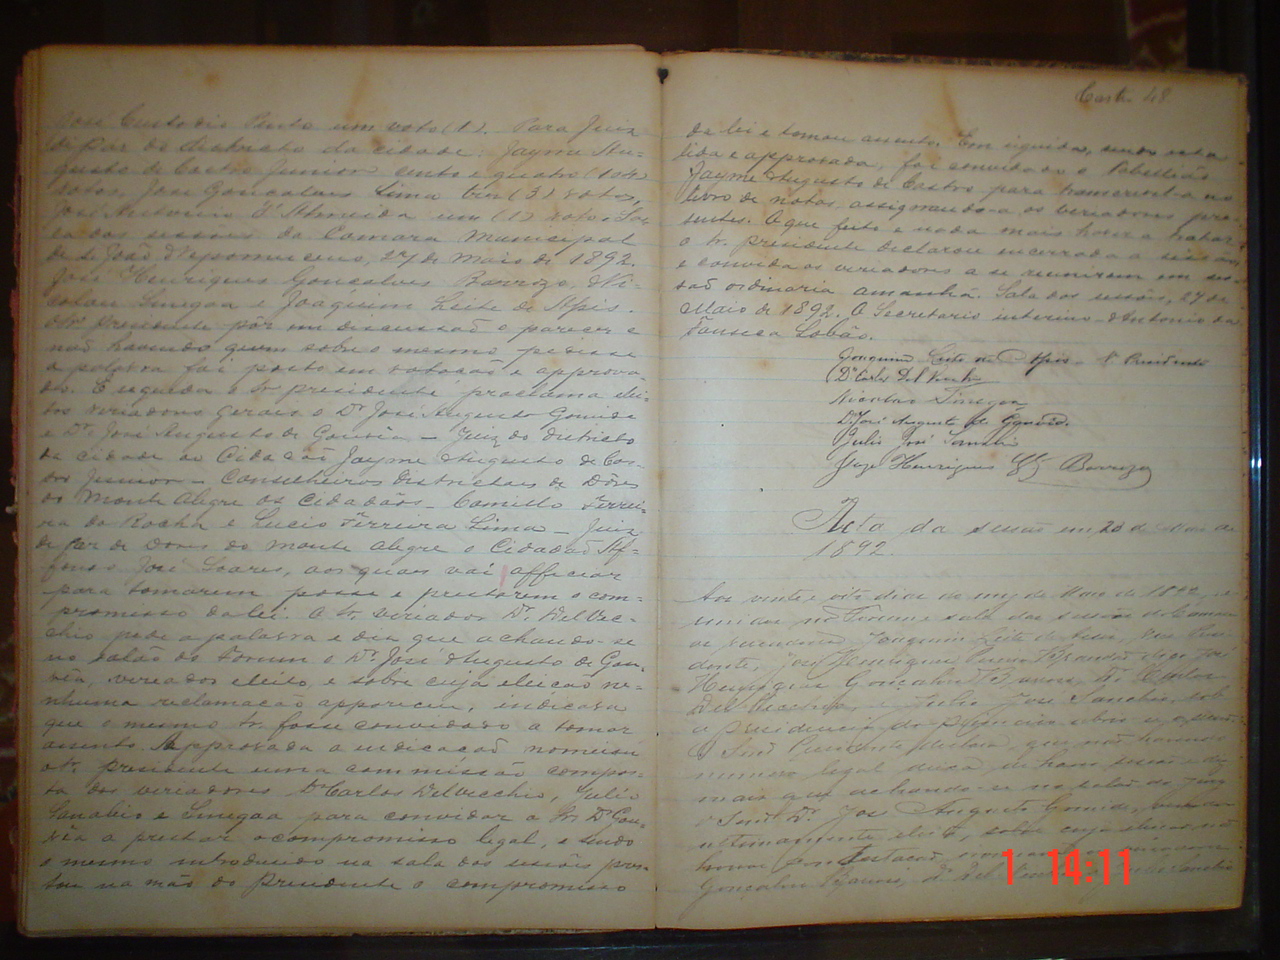 José Custodio Pinto um voto (1). Para Juiz
de Paz do districto da cidade: Jayme Au-
gusto de Castro Junior cento e quatro (104)
votos, José Gonçalves Lima tres (3) votos,
José Antonio d'Almeida um (1) voto. Sa-
la das sessões da Camara Municipal
de S. João Nepomuceno, 27 de Maio de 1892.
José Henriques Gonçalves Barroso, Ni-
colau e Joaquim Leite de Assis.
O Snr presidente pôr em discussão o parecer e
não havendo quem sobre o mesmo pedisse
a palavra foi posto em votação e approva-
do. Em seguida o Sr presidente proclama elei-
tos vereadores geraes o Dr José Augusto
e Dr José Augusto de Gouvêa - Juiz do districto
da cidade ao Cidadão Jayme Augusto de Cas-
tro Junior - Conselheiros districtaes de Dôres
do Monte Alegre os Cidadãos - Camillo Ferrei-
ra da Rocha e Lucio Ferreira Lima - Juiz
de Paz de Dores do Monte Alegre o Cidadão Af-
fonso José Soares, aos quaes vai officiar
para tomarem posse e prestarem o com-
promisso da lei. O Sr. vereador Dr. DelVec-
chio pede a palavra e diz que achando-se
no salão do Forum o Dr. José Augusto de Gou-
vêa, vereador eleito, e sobre cuja eleição ne-
nhuma reclamação appareceu, indicava
que o mesmo Sr. fosse convidado a tomar
assento. Approvada a indicação nomeiou
o Sr. presidente uma commissão compos-
ta dos vereadores Dr Carlos Delvecchio, Julio
Sanabio e para convidar o Sr Dr Gou-
vêa a prestar o compromisso legal, e sendo
o mesmo introduzido na sala das sessões pres-
tou na mão do Presidente o compromisso
Castro 48
da lei e tomou assento. Em seguida, sendo esta
lida e approvada, foi convidado o Tabellião
Jayme Augusto de Castro para transcrevel-a no
livro de notas, assignando-a os vereadores pre-
sentes. O que feito e nada mais haver a tratar
o Sr. presidente declarou encerrada a
e convida os vereadores a se reunirem em ses-
são ordinaria amanhã. Sala das sessões, 27 de
Maio de 1892. O Secretario interino Antonio da
Fonseca Lobão.
Joaquim Leite de Assis - Presidente
Dr Carlos DelVecchio
Nicolau
Dr José Augusto de Gouvêa.
Julio José Sanabio
José Henriques Glz Barroso
Acta da sessão em 28 de Maio de
1892.
Aos vinte e oito dias do mez de Maio de 1892, re-
unidos no Forum e sala das sessões da Camara
os vereadores Joaquim Leite de Assis, Presi-
dente, José
Henriques Gonçalves Barroso, Dr Carlos
Del Vecchio, e Julio José Sanabio, sob
a presidencia do primeiro
O Snr Presidente declara que não havendo
numero legal deixa de haver sessão e diz
mais que achando-se no salão do Jury
o Snr Dr José Augusto Gouvêa, vereador
ultimamente eleito, sobre cuja eleição não
houve contestação,
Gonçalves Barroso, Dr Del Vecchio e Julio Sanabio
1 14:11